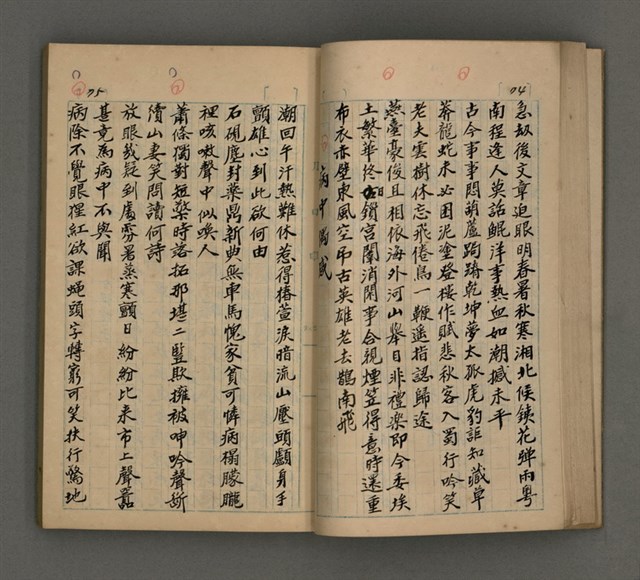 94
急劫後文章迫眼明春暑秋寒湘北候鋏花彈雨粤
南程逢人莫話鯤洋事熱血如潮撼未平
古今事事悶葫蘆跼蹐乾坤夢太孤虎豹詎知藏草
莽龍蛇未必困泥塗登樓作賦悲秋客入蜀行吟笑
老夫雲樹休忘飛倦鳥一鞭遥指認歸途
燕臺豪俊且相依海外河山舉目非禮樂即今委埃
土繁華終鎖宮闈消閑事合視煙笠得意時還重
布衣赤壁東風空吊古英雄老去鵲南飛
病中偶感
95
潮回午汗熱難休惹得椿萱淚暗流山壓頭顱身手
顫雄心到此欲何由
石硯塵封藥鼎新典無車馬愧家貧可憐病榻朦朧
裡咳嗽聲中似喚人
蕭條獨對短檠時落拓那堪二豎欺擁被呻吟聲斷
續山妻笑問讀何詩
放眼我疑到處雰暑蒸寒顫日紛紛比來市上聲囂
甚竟為病中不與聞
病除不覺眼猩紅欲課蠅頭字轉窮可笑扶行驚地